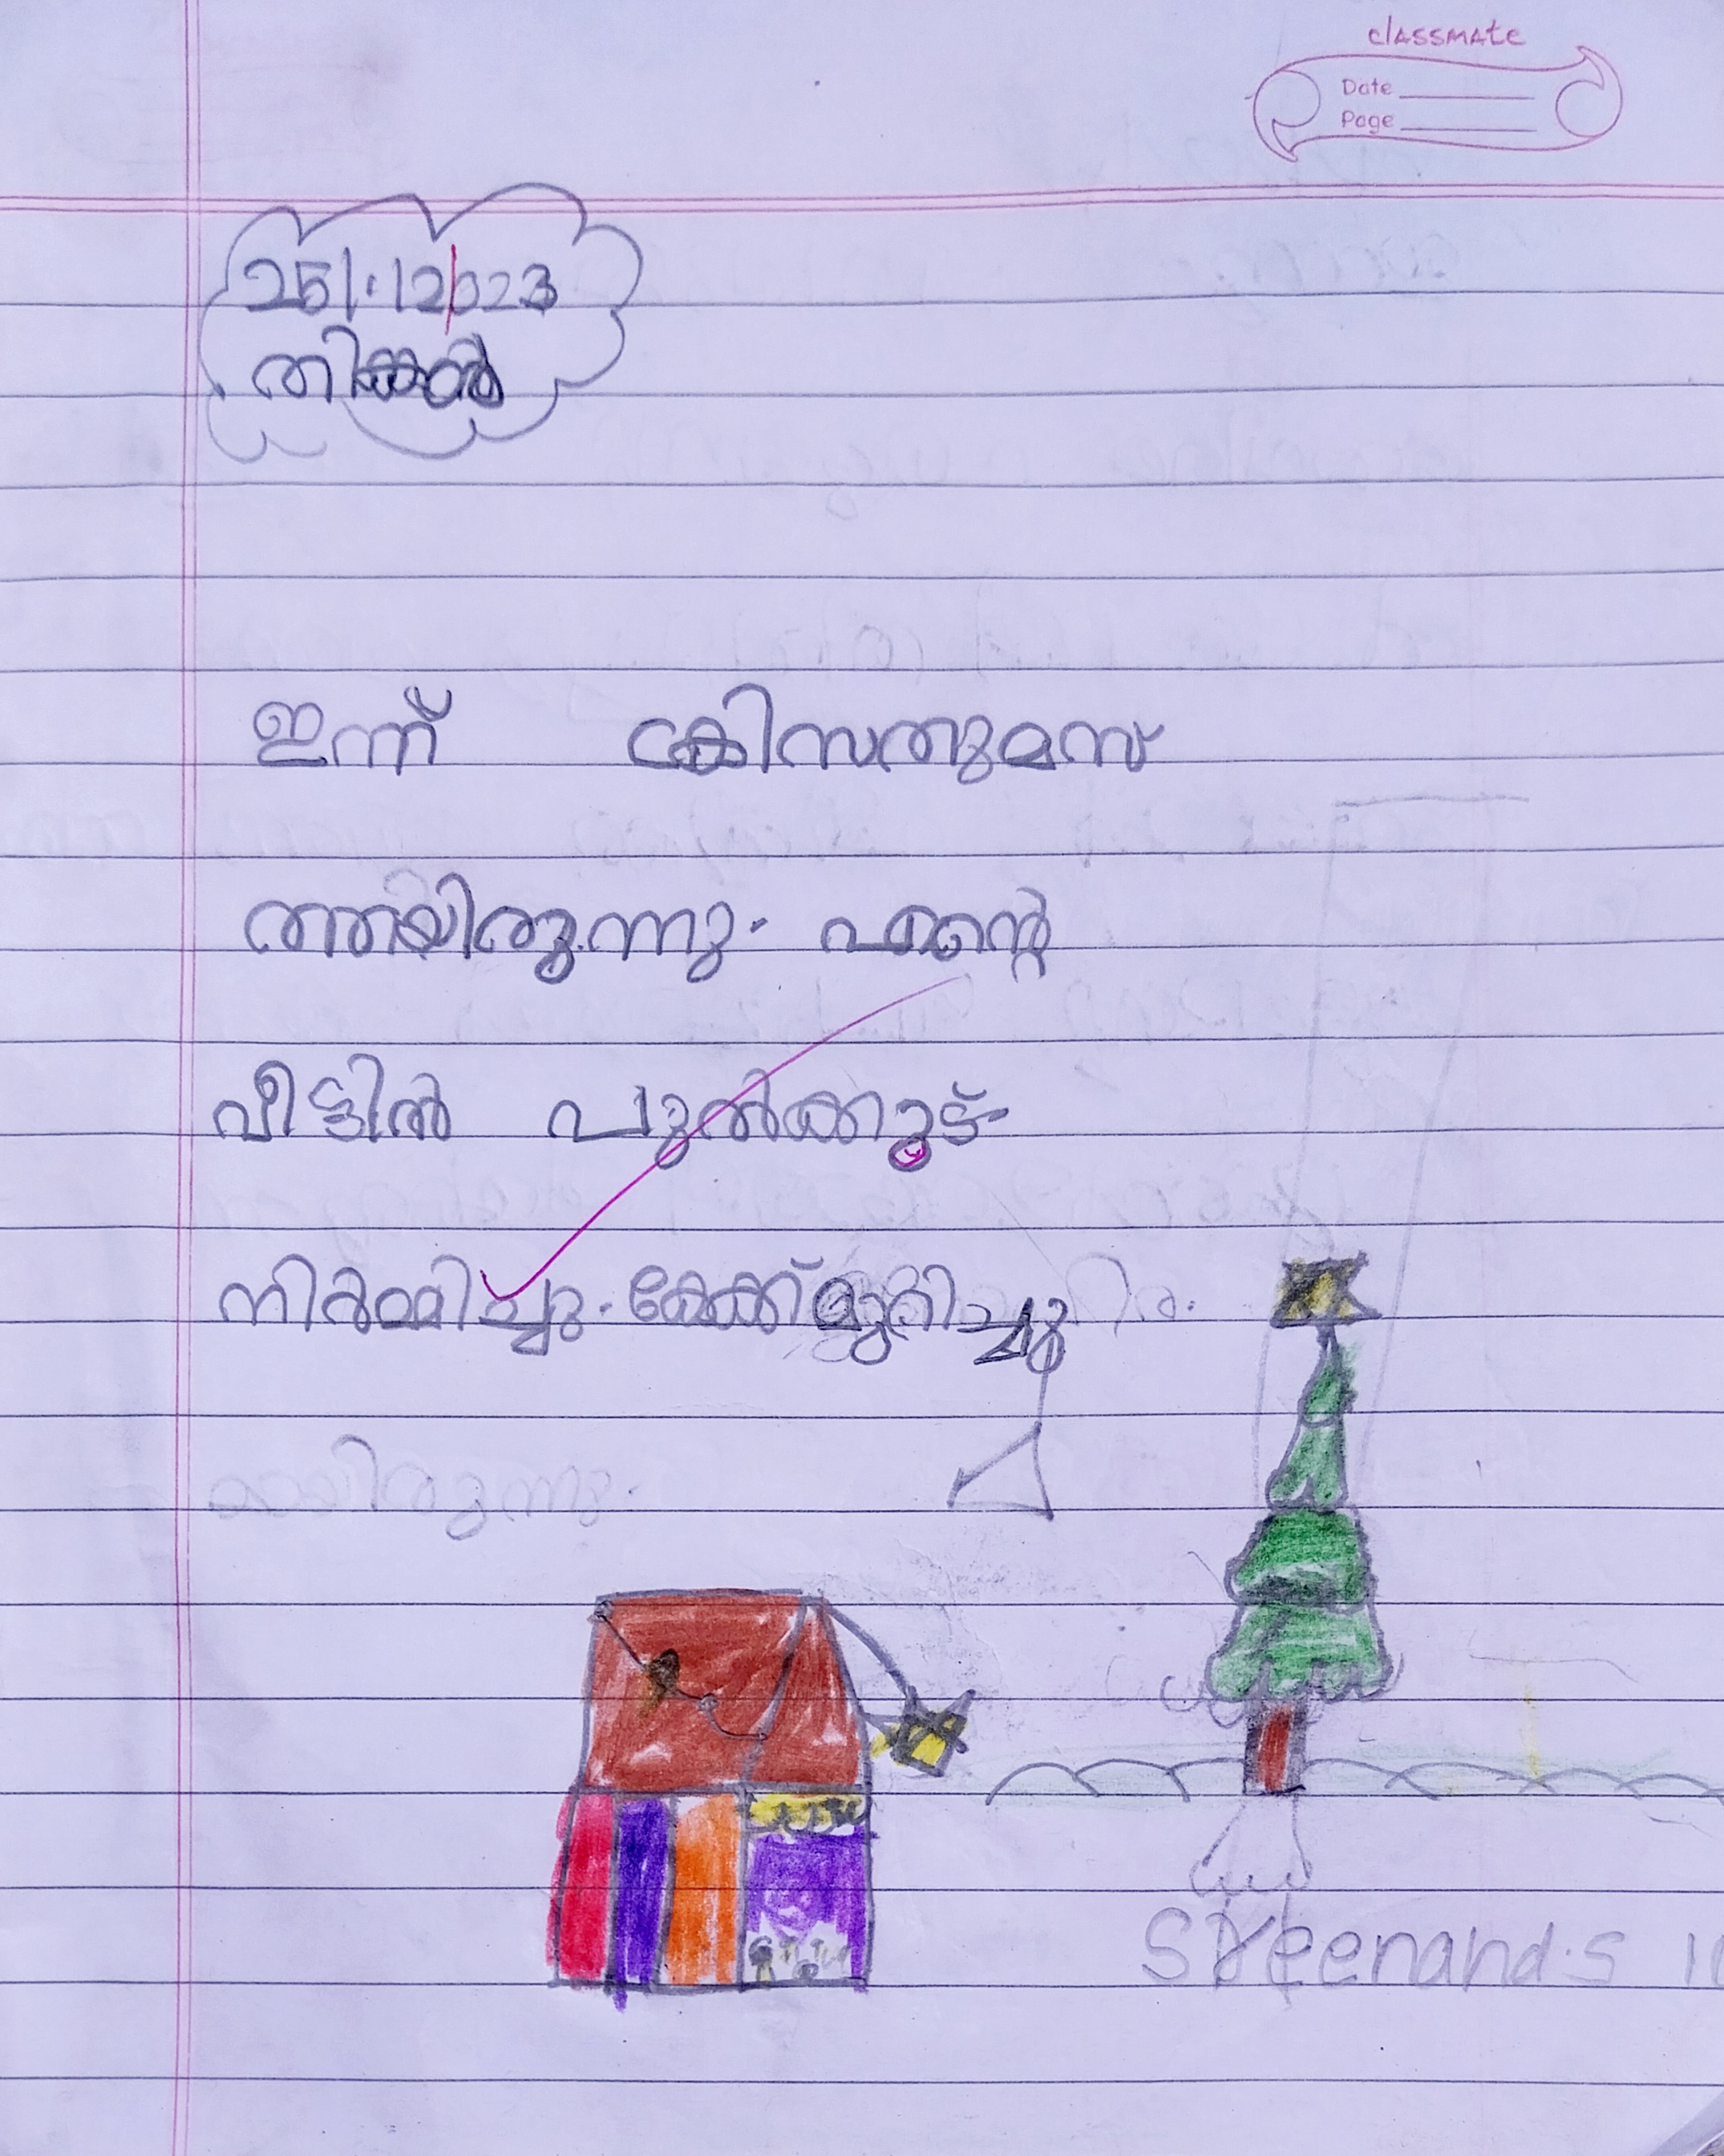 classmate
Date
Page
25/12/2023
തിങ്കൾ
ഇന്ന് ക്രിസതുമസ്
ആയിരുന്നു. എന്റെ
വീട്ടിൽ പുൽക്കൂട്
നിർമ്മിച്ചു. കേക്ക് മുറിച്ചു
യിരുന്നു.
Sreenand.S